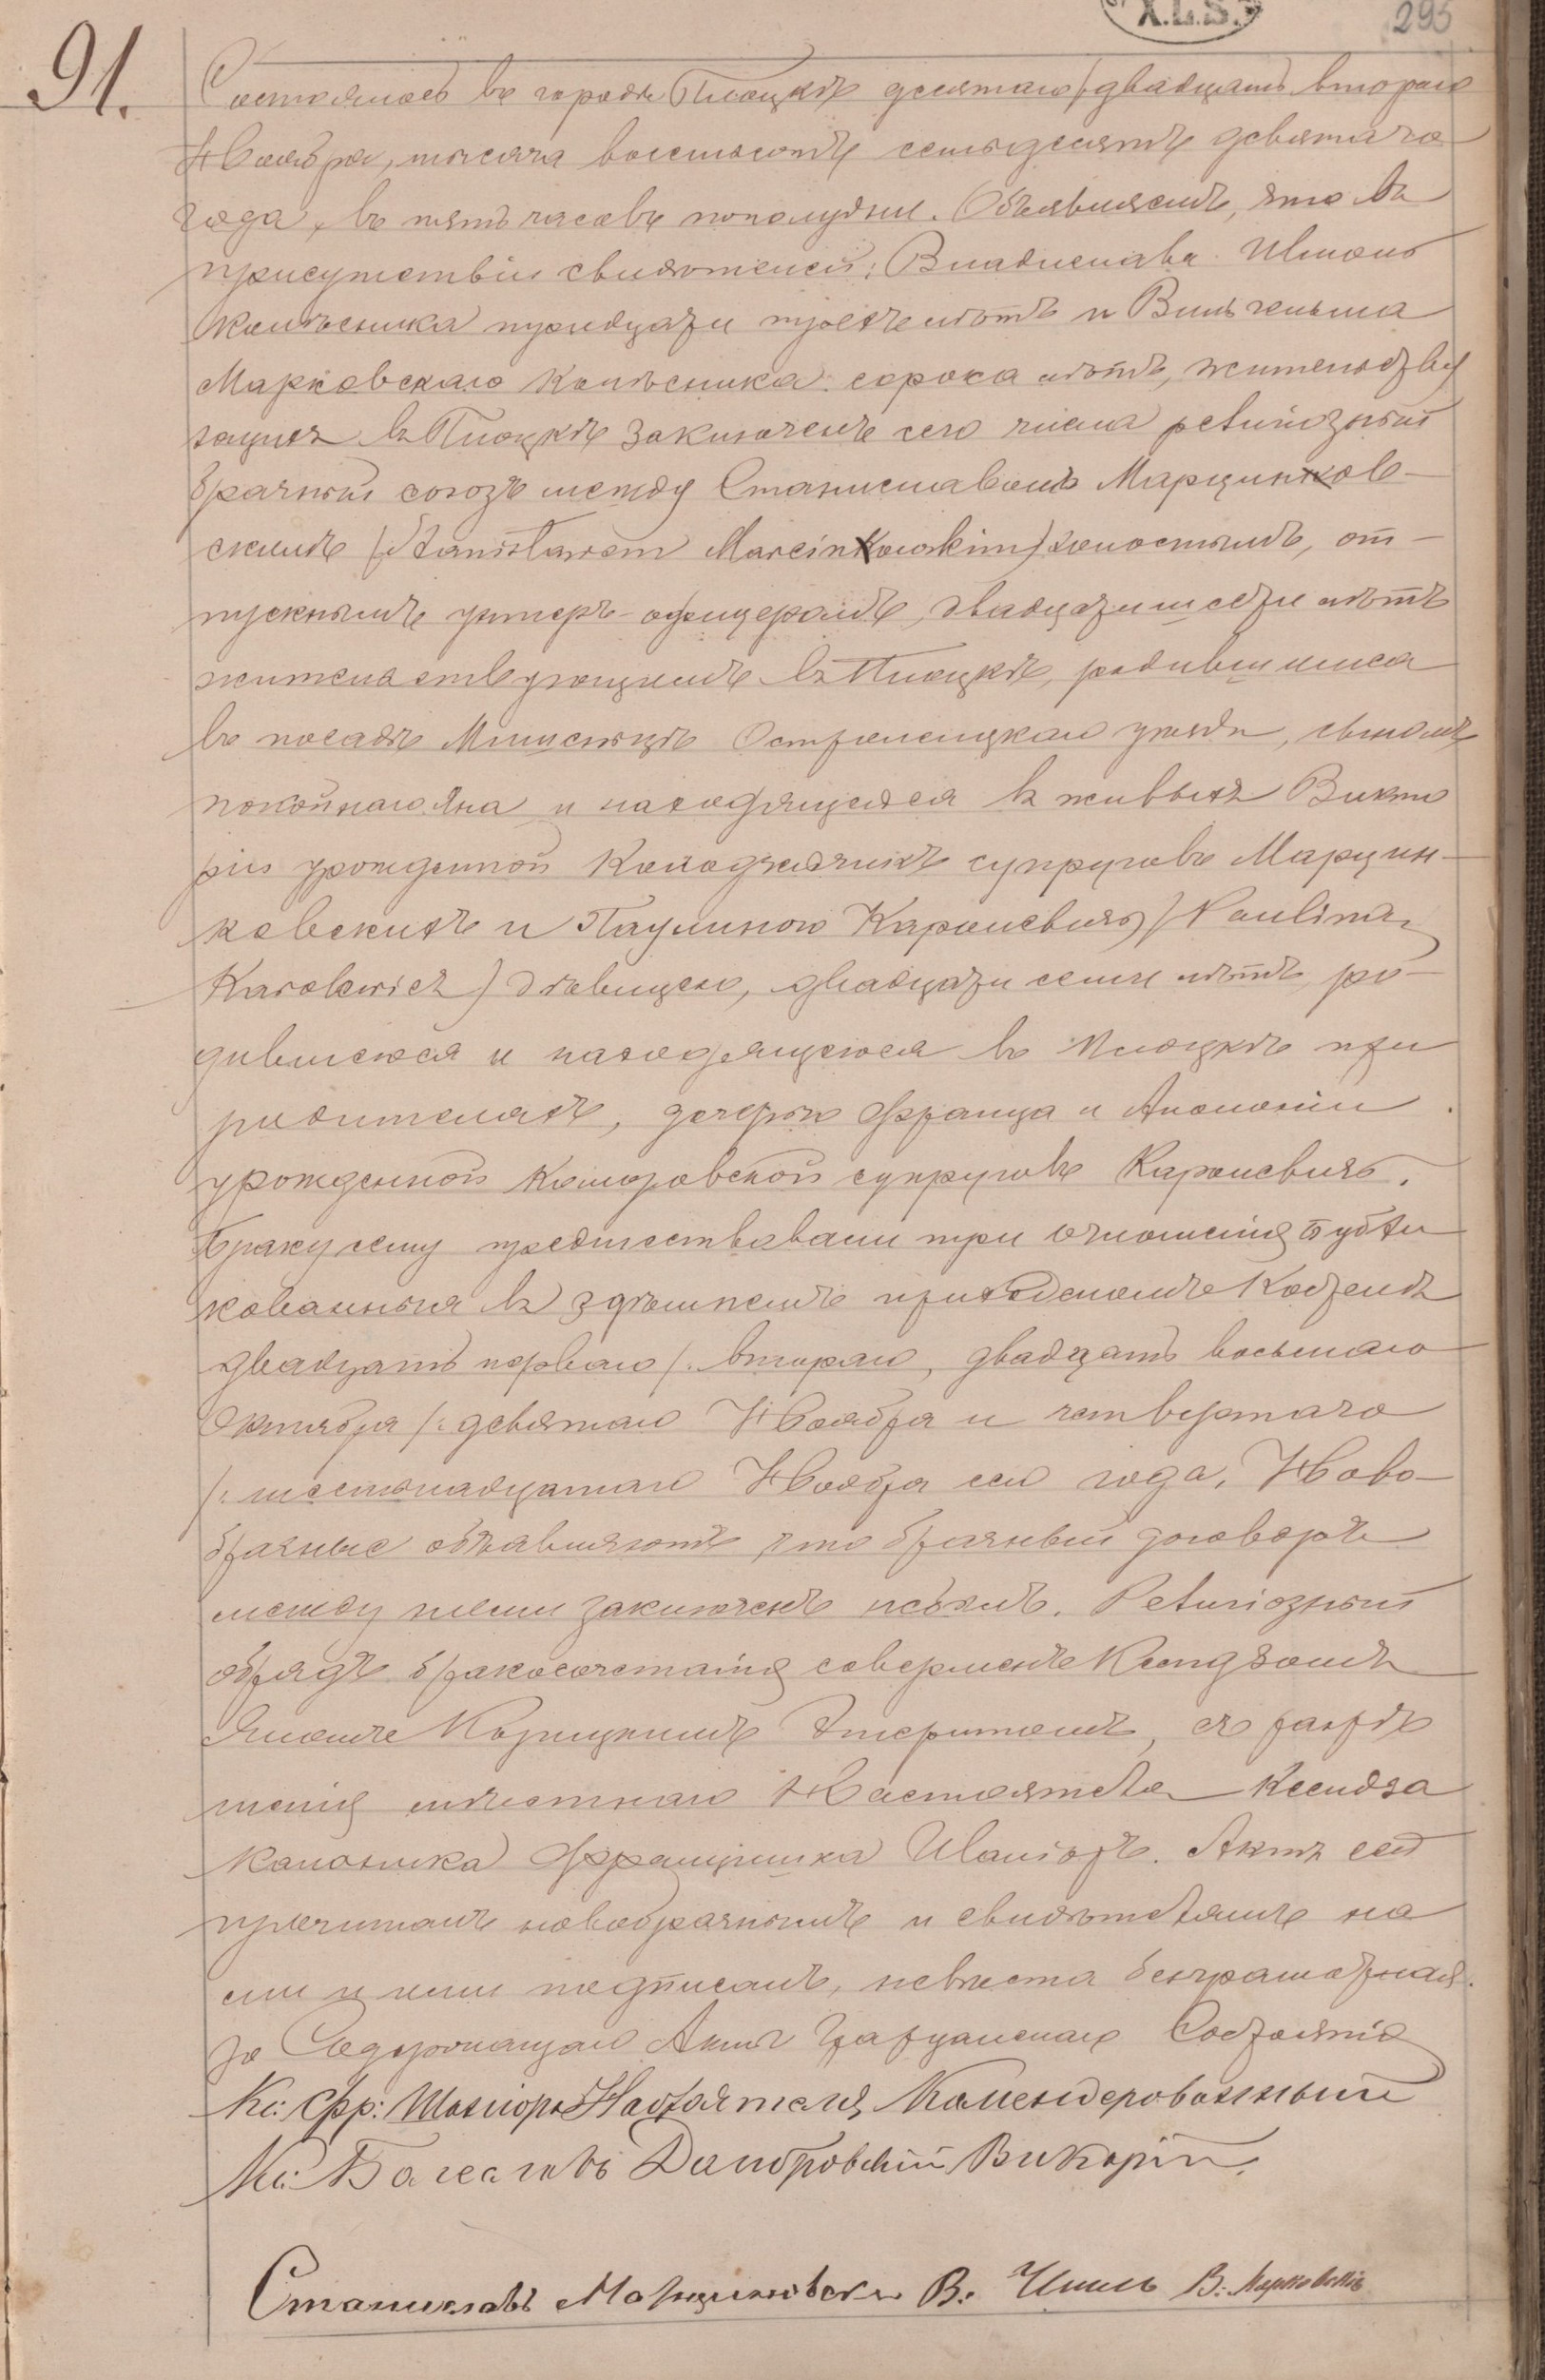 X.L.S.
295
91.
Состоялось въ городѣ Плоцкѣ десятаго /двадцать втораго
Ноября, тысяча восемьсотъ семьдесятъ девятаго
года, въ пять часовъ пополудни. Объявляемъ, что въ
присутствіи свидѣтелей: Владислава
Колѣсника тридцати трехъ лѣтъ и Вильгельма
Марковскаго Колѣсника сорока лѣтъ, жительству
ющихъ въ Плоцкѣ заключенъ сего числа религіозный
брачный союзъ между Станиславомъ Марцинков-
скимъ /Stanisławem Marcinkowskim/ холостымъ, от-
пускнымъ унтеръ-офицеромъ, двадцати шести лѣтъ
жительствующимъ въ Плоцкѣ, родившимся
въ посадѣ Остроленцкаго уѣзда, сыномъ
покойнаго Яна и находящейся въ живыхъ Викто
ріи урожденной супруговъ Марцин-
ковскихъ и Паулиною Каролевичъ /Paulina
Karolewicz/ дѣвицею, двадцати семи лѣтъ, ро-
дившеюся и находящеюся въ Плоцкѣ при
родителяхъ, дочерью Франца и Аполоніи
урожденной Коморовской супруговъ Каролевичъ.
Браку сему предшествовали три оглашенія Публи
кованныя въ здѣшнемъ приходскомъ Костелѣ
двадцать перваго /: втораго, двадцать восьмаго
Октября /: девятаго Ноября и четвертаго
/: шестнадцатаго Ноября сего года, Ново-
брачные объявляютъ что брачный договоръ
между ними заключенъ небылъ. Религіозный
обрядъ бракосочетанія совершенъ Ксендзомъ
Яномъ Эмеритомъ, съ разрѣ
шенія мѣстнаго Настоятеля Ксендза
Каноника Францишка Шаніоръ. Актъ сей
прочитанъ новобрачнымъ и свидѣтелямъ на
ми и ими подписанъ, невѣста безграмотная.
за Содержащаго Акты Гражданскаго Состоянія
Кс: Фр: Шаніоръ Настоятеля, Комендерованный
Кс: Болеславъ Домбровскій Викарій
Станиславъ Марцинковскій В. В: Марковскій